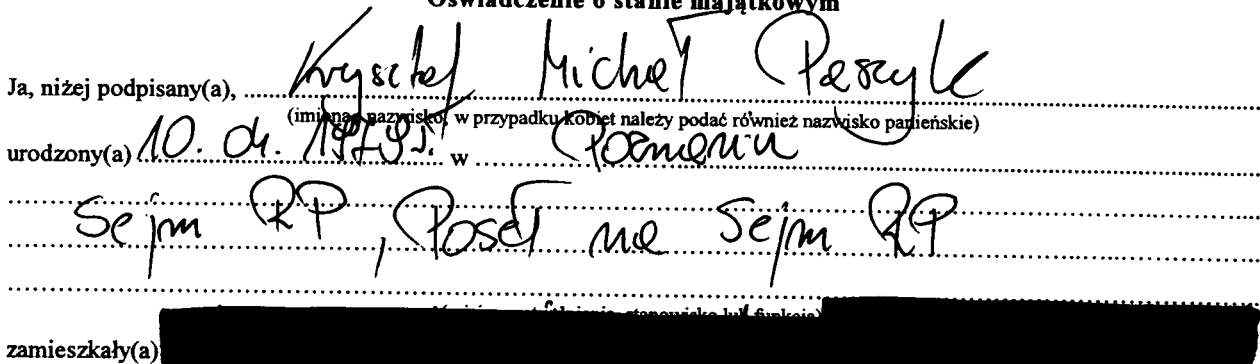 Oświadczenie o stanie majątkowym
Ja, niżej podpisany(a), Krzysztof Michał Paszyk
(imiona i nazwisko, w przypadku kobiet należy podać również nazwisko panieńskie)
urodzony(a) 10. 04. 1979r. w Poznaniu
Sejm RP, Poseł na Sejm RP
stanowisko lub funkcja)
zamieszkały(a)